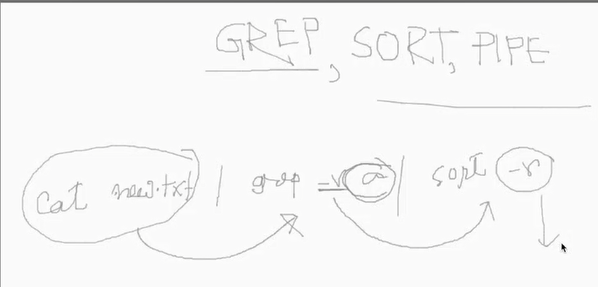 GREP, SORT, PIPE
cat new.txt | grep -v a | sort -r